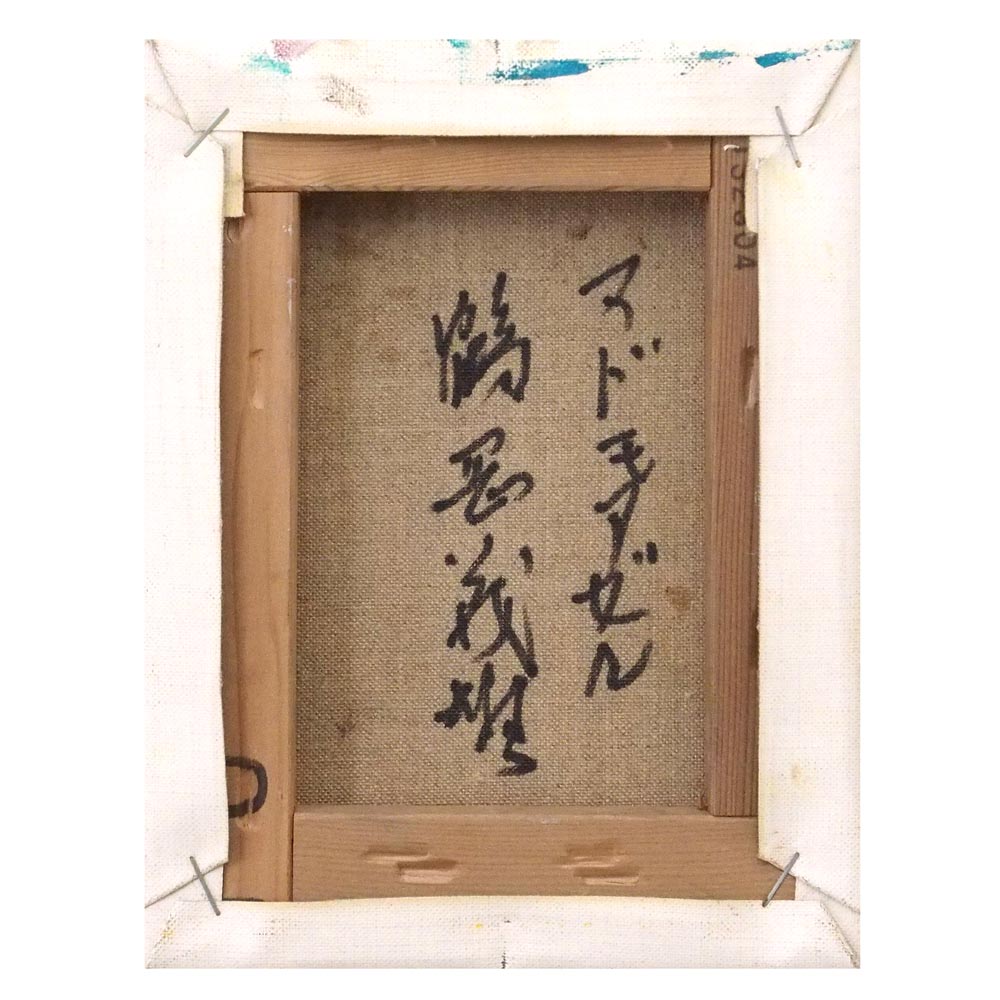 マドモアゼル
鶴岡義雄
152304